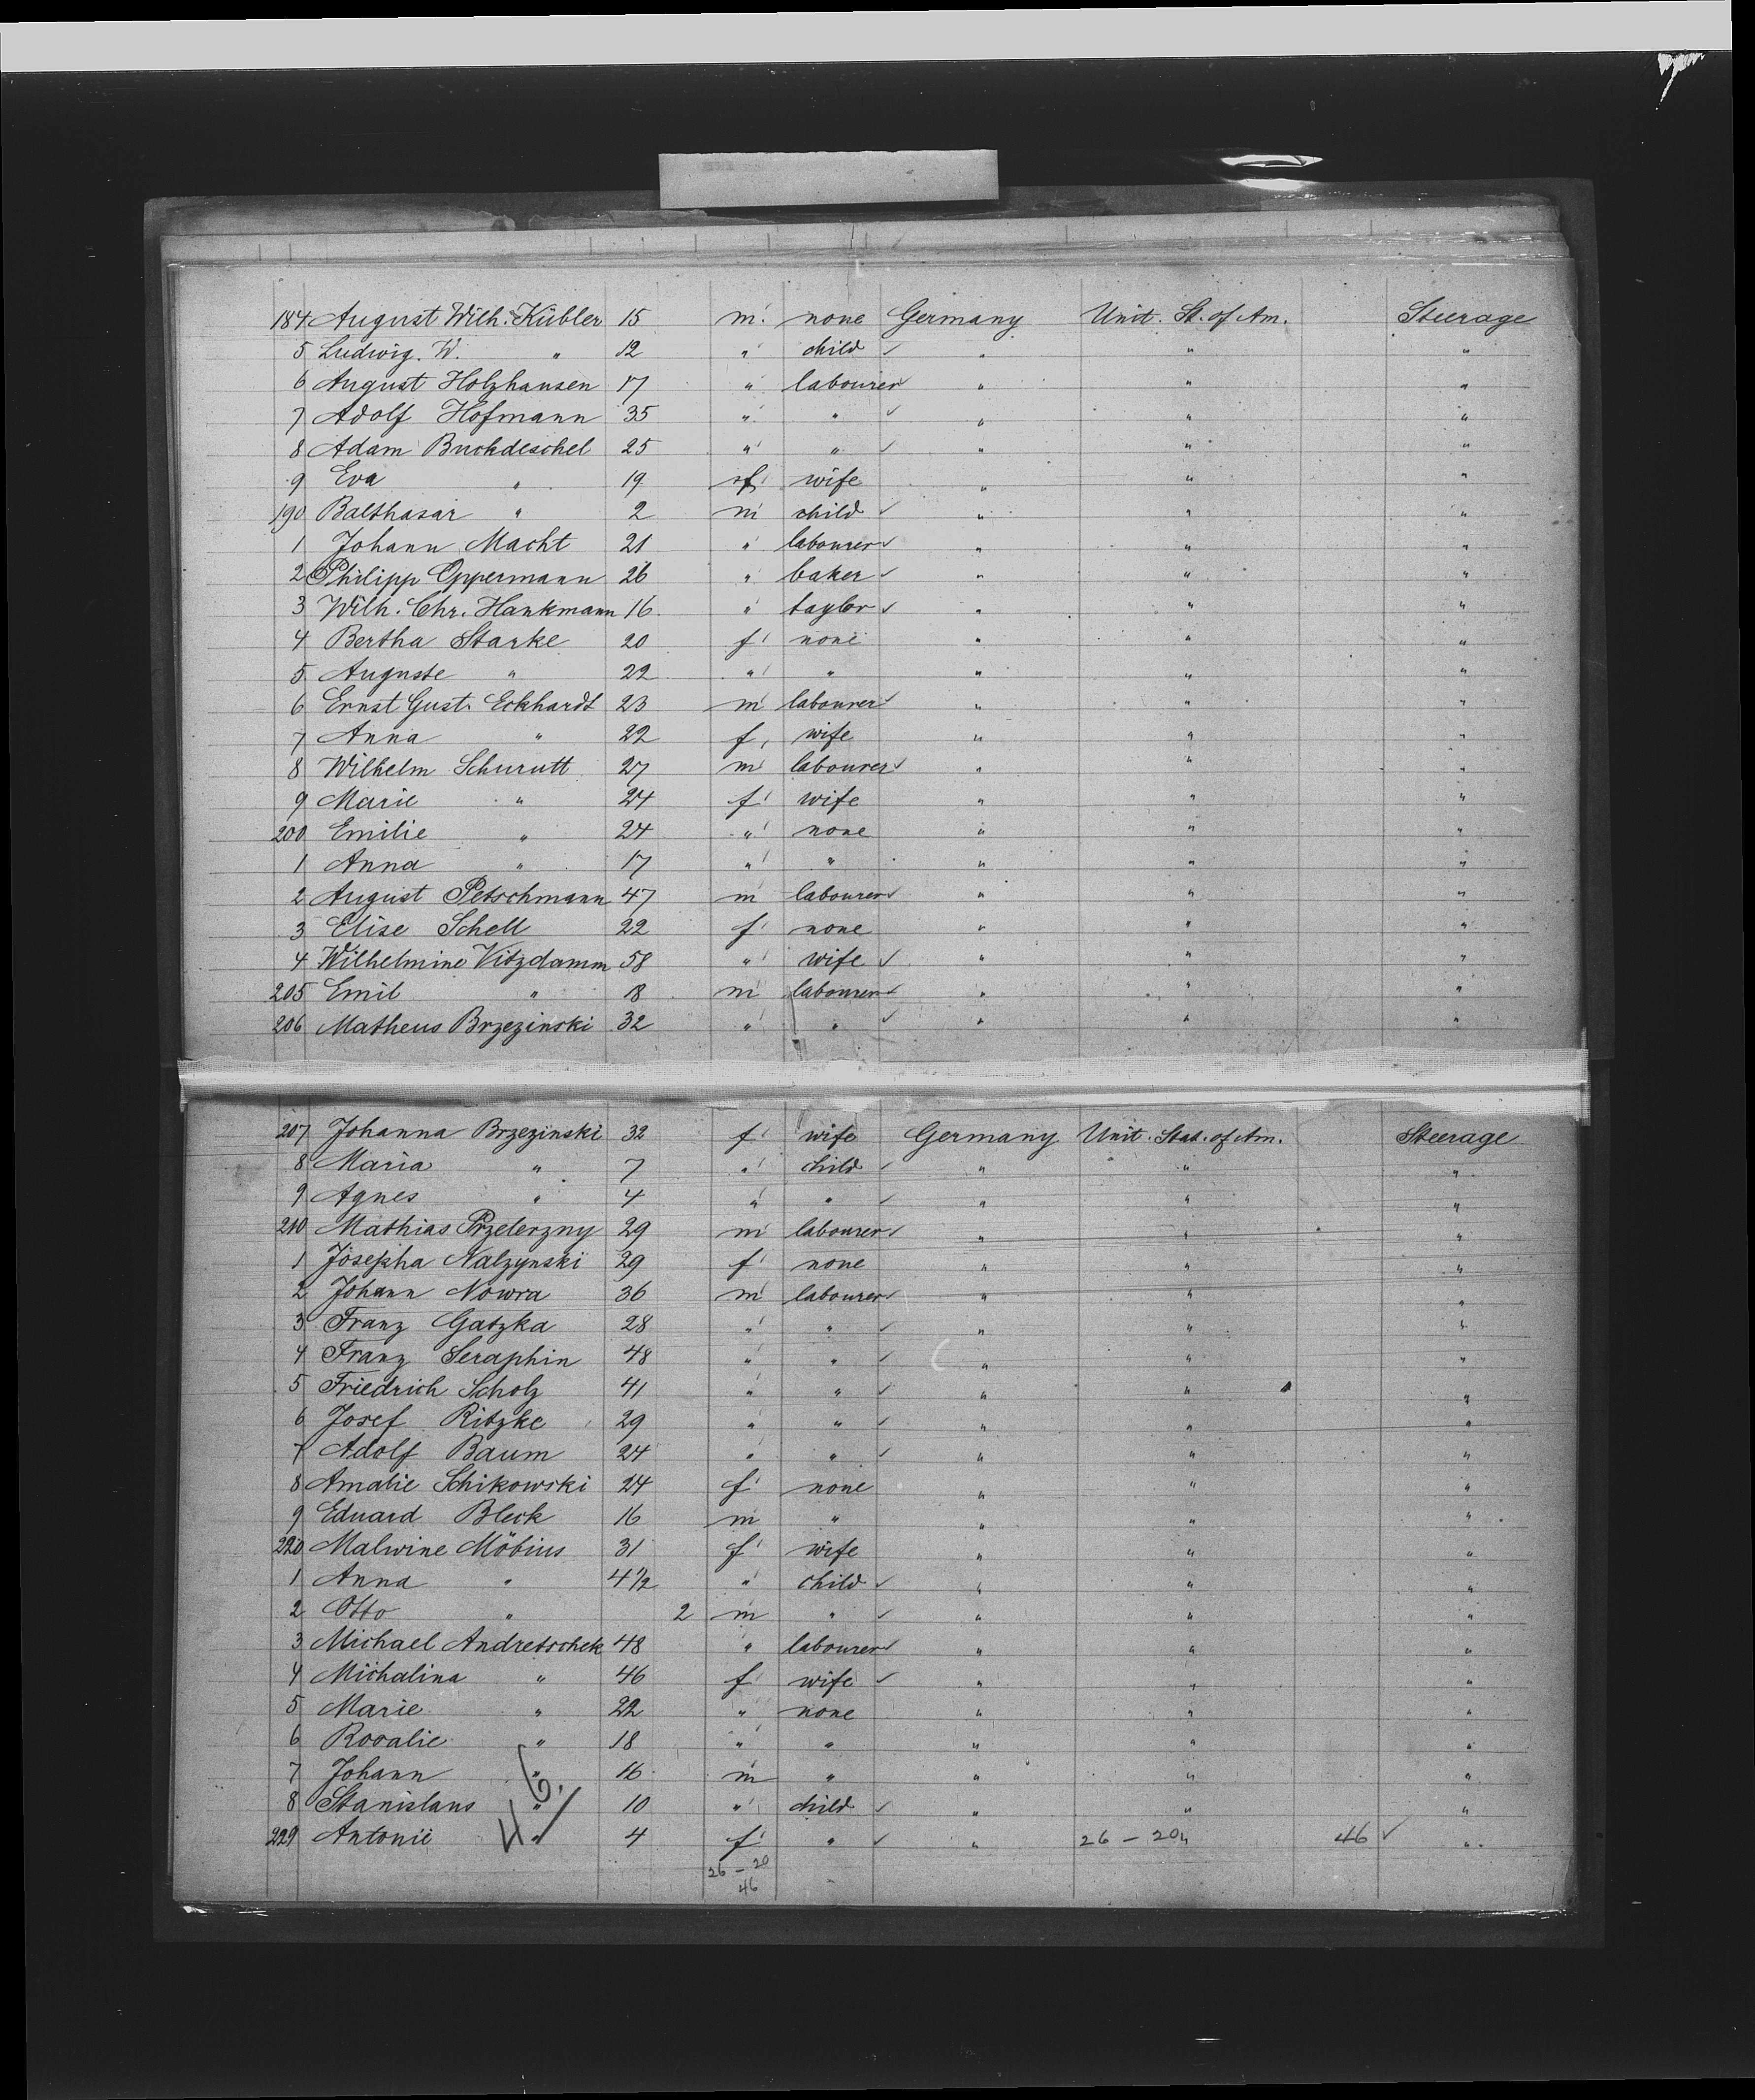 184 August Wilh. Kübler 15 m. none Germany Unit. St. of Am. Steerage
5 Ludwig. W. " 12 " child ✓ " " "
6 August Holzhausen 17 " labourer ✓ " " "
7 Adolf Hofmann 35 " " ✓ " " "
8 Adam Buchdeschel 25 " " ✓ " " "
9 Eva " 19 f wife " " "
190 Balthasar " 2 m child ✓ " " "
1 Johann Macht 21 " labourer ✓ " " "
2 Philipp Oppermann 26 " baker ✓ " " "
3 Wilh. Chr. Hankmann 16 " taylor ✓ " " "
4 Bertha Starke 20 f none " " "
5 Auguste " 22 " " " " "
6 Ernst Gust. Eckhardt 23 m labourer ✓ " " "
7 Anna " 22 f wife " " "
8 Wilhelm Schurutt 27 m labourer ✓ " " "
9 Marie " 24 f wife " " "
200 Emilie " 24 " none " " "
1 Anna " 17 " " " " "
2 August Petschmann 47 m labourer ✓ " " "
3 Elise Schell 22 f none " " "
4 Wilhelmine Vitzdamm 58 " wife ✓ " " "
205 Emil " 18 m labourer ✓ " " "
206 Matheus Brzezinski 32 " " ✓ " " "
207 Johanna Brzezinski 32 f wife Germany Unit. Stat. of Am. Steerage
8 Maria " 7 " child ✓ " " "
9 Agnes " 4 " " ✓ " " "
210 Mathias Przelerzny 29 m labourer ✓ " " "
1 Josepha Nalzynski 29 f none " " "
2 Johann Nowra 36 m labourer ✓ " " "
3 Franz Gatzka 28 " " ✓ " " "
4 Franz Seraphin 48 " " ✓ " " "
5 Friedrich Scholz 41 " " ✓ " " "
6 Josef Ritzke 29 " " ✓ " " "
7 Adolf Baum 24 " " ✓ " " "
8 Amalie Schikowski 24 f none " " "
9 Eduard Bleck 16 m " " " "
220 Malwine Möbius 31 f wife " " "
1 Anna " 4½ " child ✓ " " "
2 Otto " 2 m " ✓ " " "
3 Michael Andretschek 48 " labourer ✓ " " "
4 Michalina " 46 f wife ✓ " " "
5 Marie " 22 " none " " "
6 Rosalie " 18 " " " " "
7 Johann " 16 m " " " "
8 Stanislaus " 10 " child ✓ " " "
229 Antonie " 4 f " ✓ " 26 - 20 " 46 ✓ "
46.
26 - 20
46